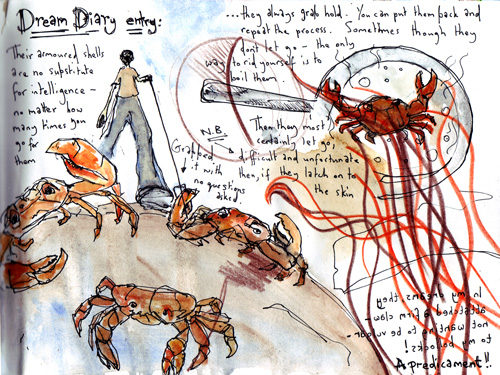 Dream Diary entry:
Their armoured shells
are no substitute
for intelligence -
no matter how
many times you
go for
them
...they always grab hold. You can put them back and
repeat the process. Sometimes though they
don't let go - the only
way to rid yourself is to
boil them.
N.B.
Grabbed
it with
no questions
asked.
Then they most
certainly let go,
difficult and unfortunate
then, if they latch on to
the skin
In my dreams, they
attached a firm claw -
not wanting to be vulgar -
to my bollocks!
A predicament!!